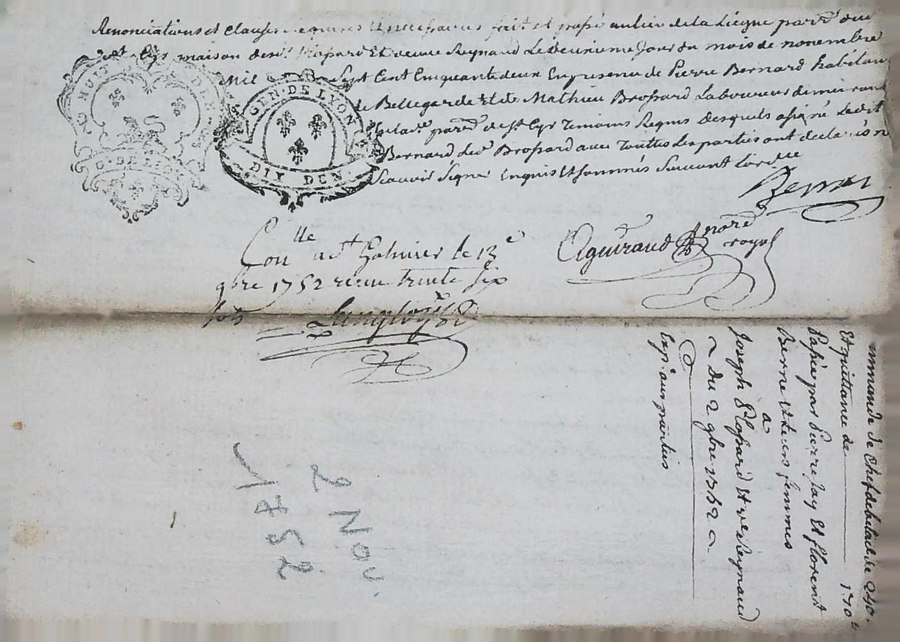 Renonciations et clauses requises Et necessaires fait et passé au lieu de la Liegue par.se dud
st Cyr maison des sr. Et veuve Reynaud Le deuxieme Jour du mois de novembre
Mil Sept Cent Cinquante deux En presence de Pierre Bernard habitant
de Bellegarde Et de Mathieu Brossard Laboureur demeurant
En lad. par.se de st Cyr Temoins Requis Desquels a signé Ledit
Bernard Led. Brossard avec Toutes Les parties ont declaré ne
Scavoir Signer Enquis Et sommés Suivant Lordce
GEN. DE LYON
DIX DEN
Bernard
Aguiraud nore royal
Conlle a st Galmier le 13e
9bre 1752 recu trente six
sols
Et quittance de 170
Payé par Pierre Jay Et florent
Berne Et leurs femmes
a
Joseph Et ve Reynaud
Du 2 9bre 1752
Exp. aux parties
2 Nov.
1752